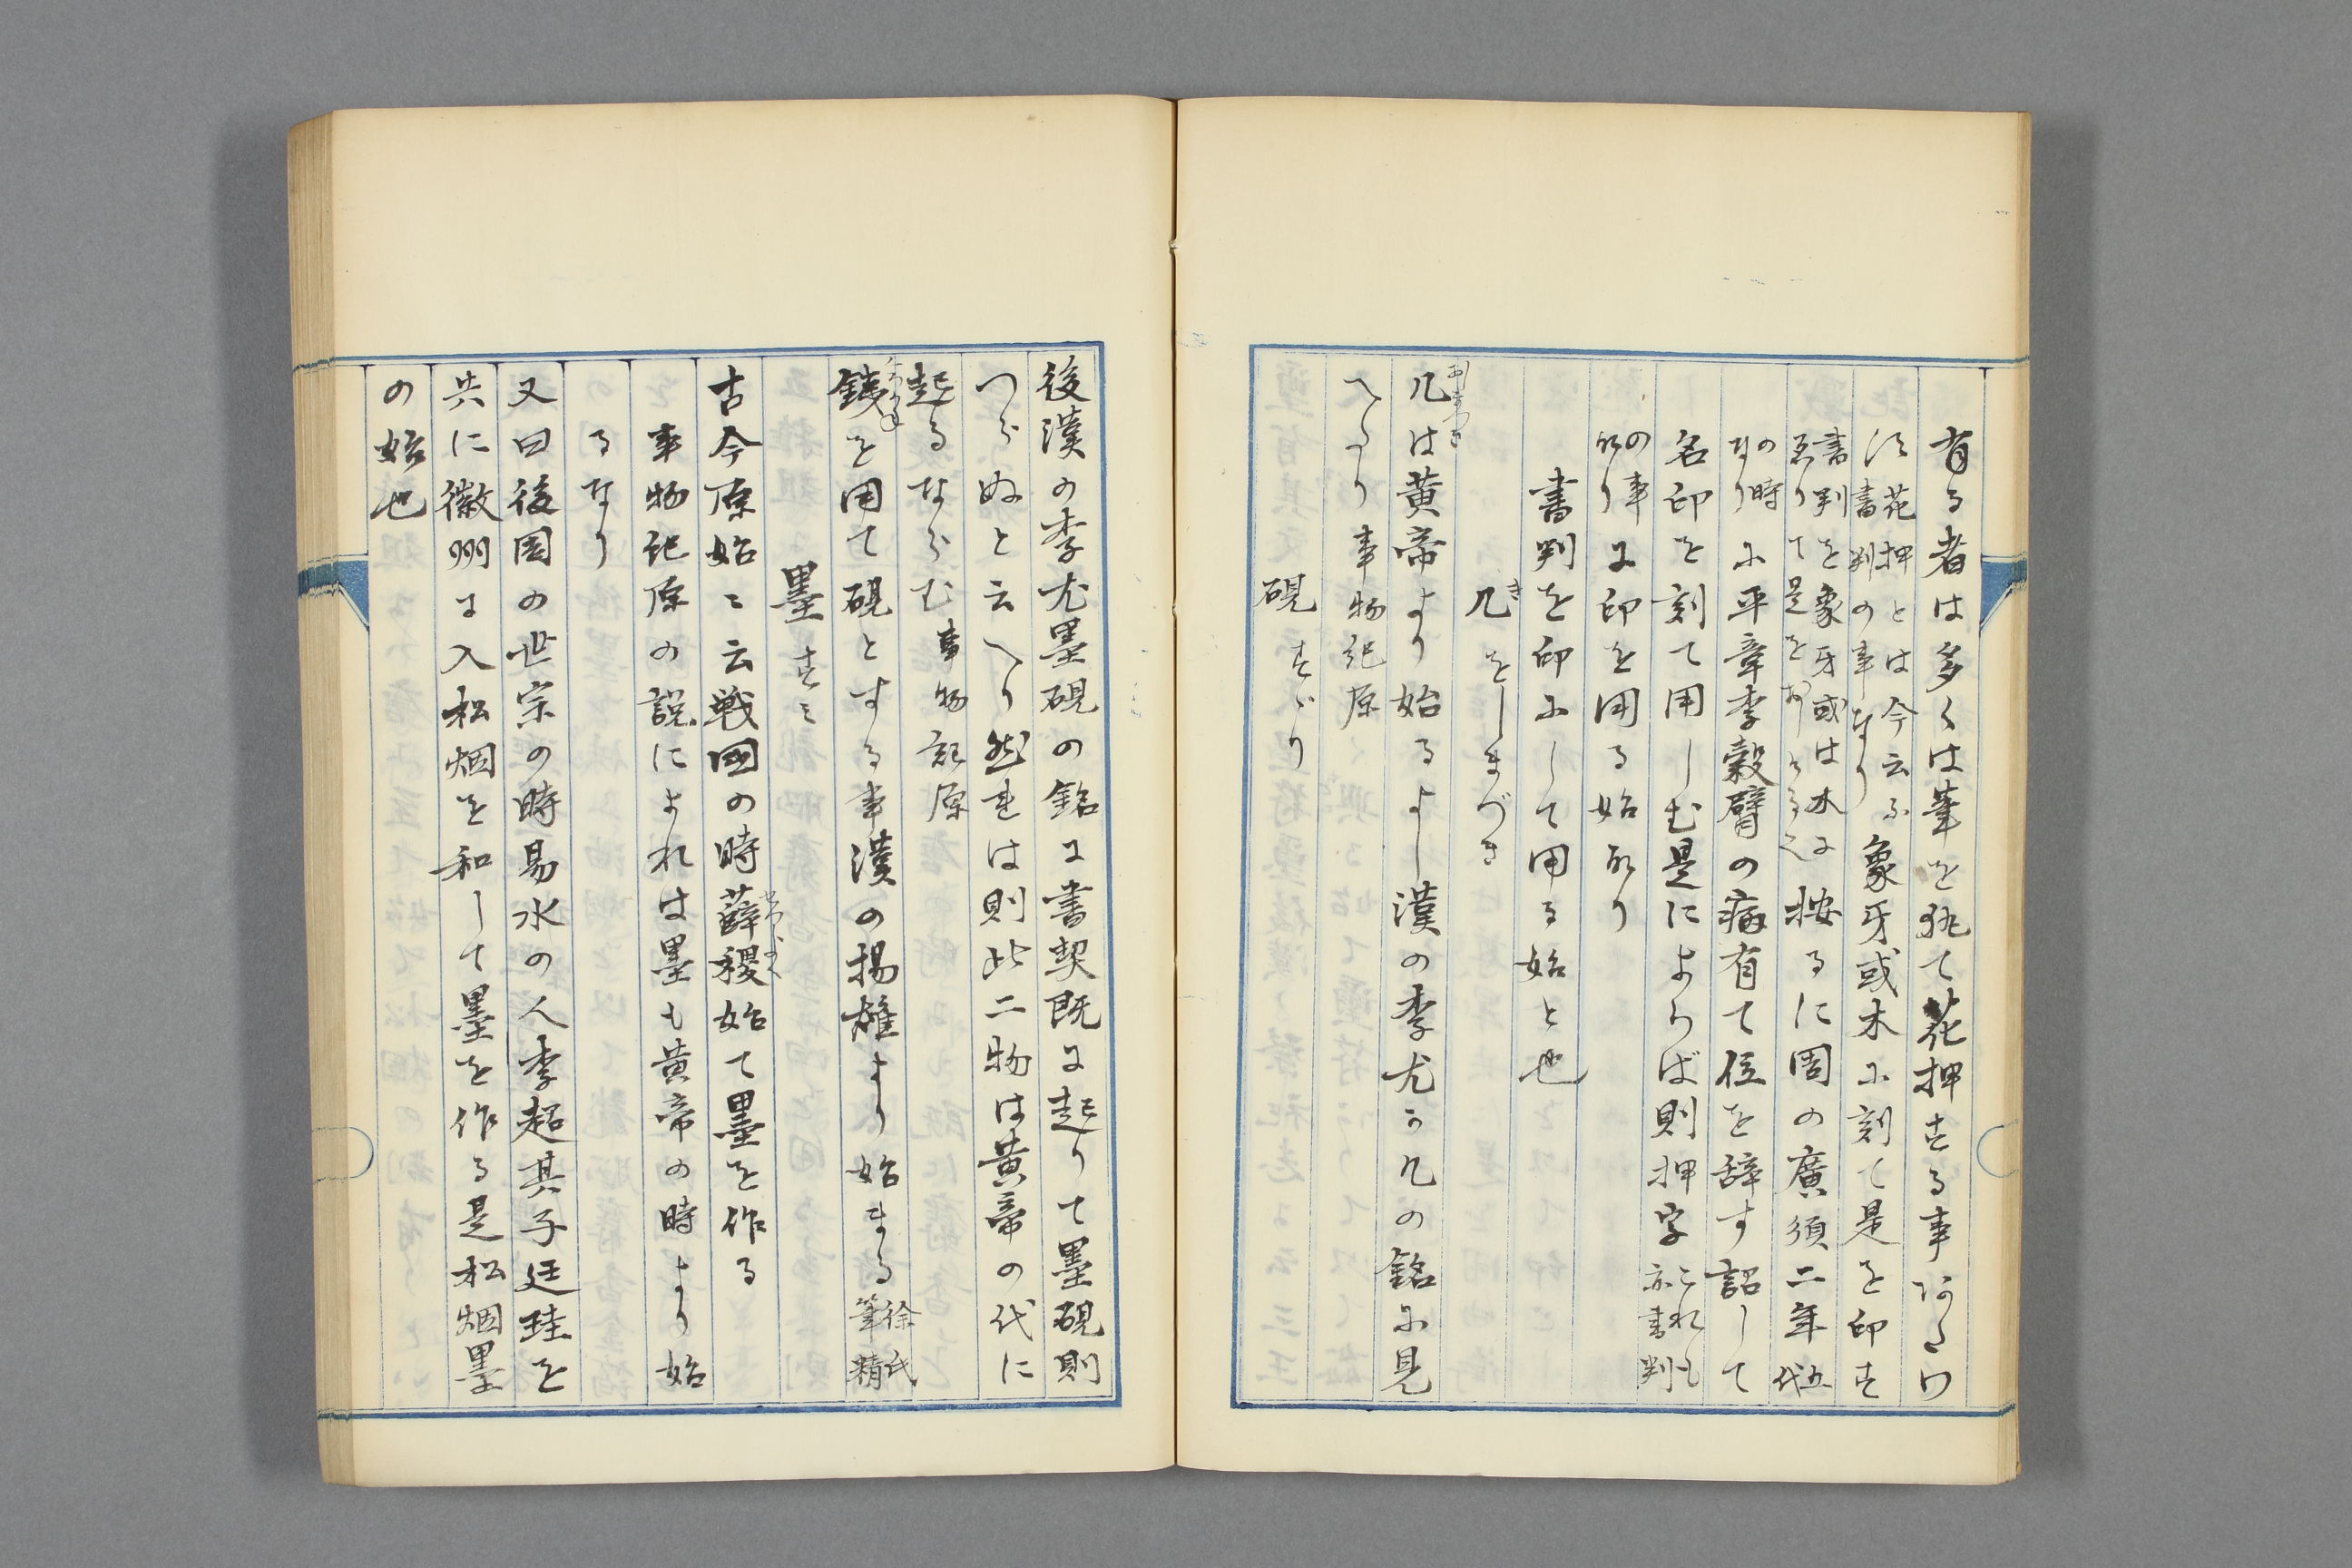 有る者は多くは筆を執て花押する事あたわ
須花押とは今云ふ書判の事なり象牙或木に刻て是を印す
書判を象牙或は木にゑりて是を おしたる也 按るに周の廣順二年五代
の時なりに平章李穀臂の病有て位を辞す詔して
名印を刻て用しむ是によらば則押字これも亦書判
の事なりに印を用る始なり
書判を印にして用る始と也
几き をしまづき
几おしまつきは黄帝より始るよし漢の李尤か几の銘に見
へたり事物紀原
硯 すゞり
後漢の李尤墨硯の銘に書契既に起りて墨硯則
つらぬと云へり然ればは則此二物は黄帝の代に
起るならむ事物記原
鉄を用て硯とする事漢の揚雄より始まる徐氏筆精
墨 すミ
古今原始ニ云戦国の時薛稷始て墨を作る
事物記原の説によれは墨も黄帝の時より始
るなり
又曰後周の世宗の時易水の人李超其子廷珪と
共に徽州に入松烟を和して墨を作る是松烟墨
の始也